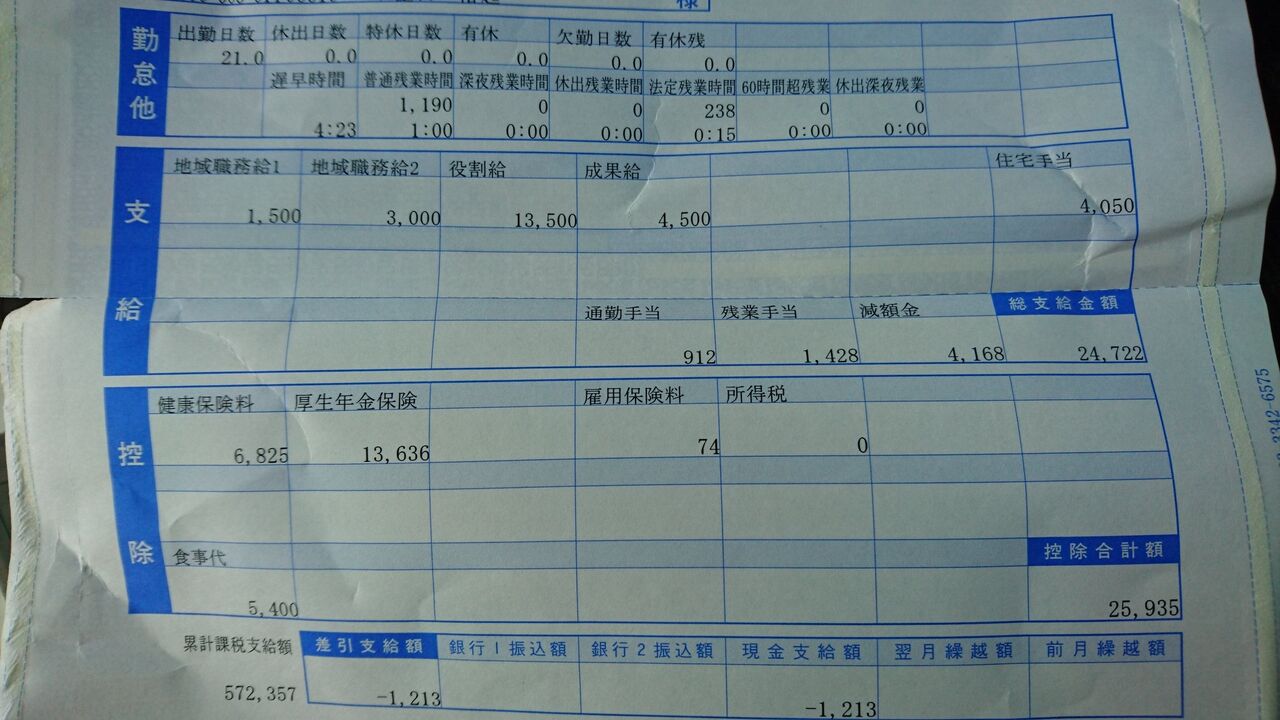 様
勤怠他
出勤日数 休出日数 特休日数 有休 欠勤日数 有休残
21.0 0.0 0.0 0.0 0.0 0.0
遅早時間 普通残業時間 深夜残業時間 休出残業時間 法定残業時間 60時間超残業 休出深夜残業
1,190 0 0 238 0 0
4:23 1:00 0:00 0:00 0:15 0:00 0:00
支給
地域職務給1 地域職務給2 役割給 成果給 住宅手当
1,500 3,000 13,500 4,500 4,050
通勤手当 残業手当 減額金 総支給金額
912 1,428 4,168 24,722
控除
健康保険料 厚生年金保険 雇用保険料 所得税
6,825 13,636 74 0
食事代 控除合計額
5,400 25,935
累計課税支給額 差引支給額 銀行1振込額 銀行2振込額 現金支給額 翌月繰越額 前月繰越額
572,357 -1,213 -1,213
3342-6575